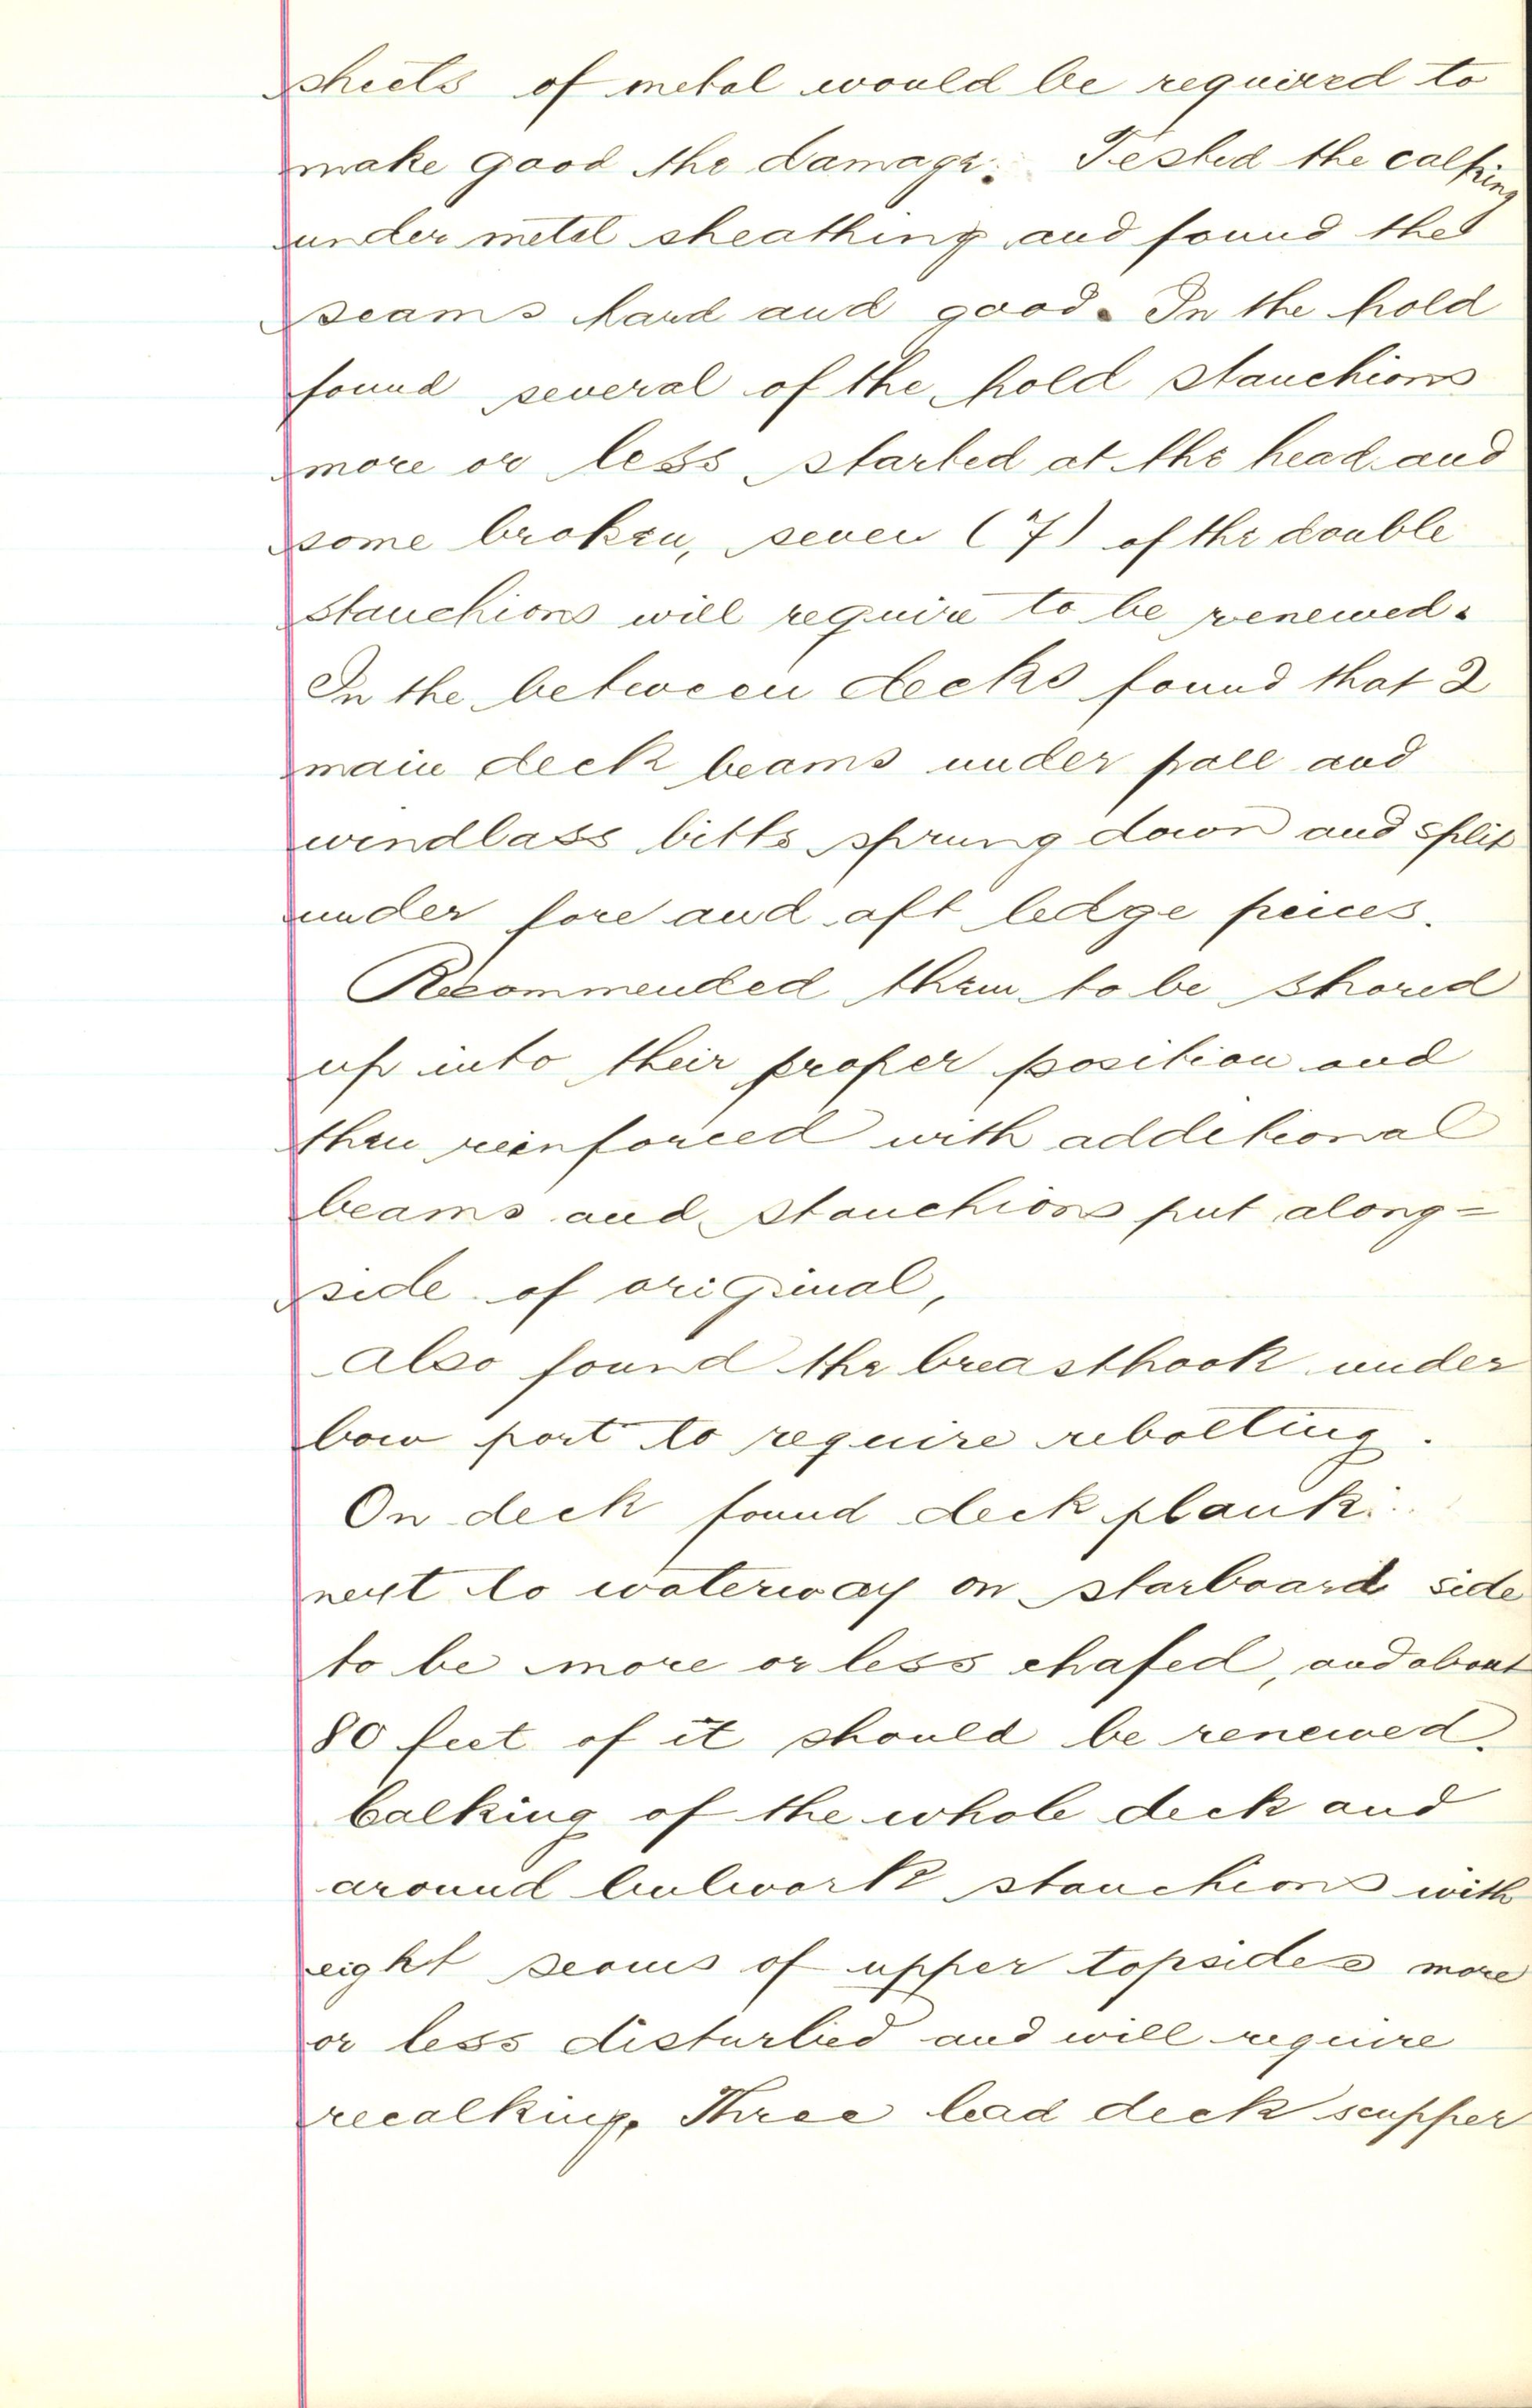 sheets of metal would be required to
make good the damage. Tested the calking
under metal sheathing and found the
seams hard and good. In the hold
found several of the hold stanchions
more or less started at the head and
some broken, seven (7) of the double
stanchions will require to be renewed.
In the between decks found that 2
main deck beams under pall and
windlass bitts sprung down and split
under fore and aft ledge peices.
Recommended them to be shored
up into their proper position and
then reinforced with additional
beams and stanchions put along=
side of original,
Also found the breasthook under
bow port to require rebolting.
On deck found deck plank
next to waterway on starboard side
to be more or less chafed, and about
80 feet of it should be renewed.
Calking of the whole deck and
around bulwark stanchions with
eight seams of upper topsides more
or less disturbed and will require
recalking. Three lead deck scupper